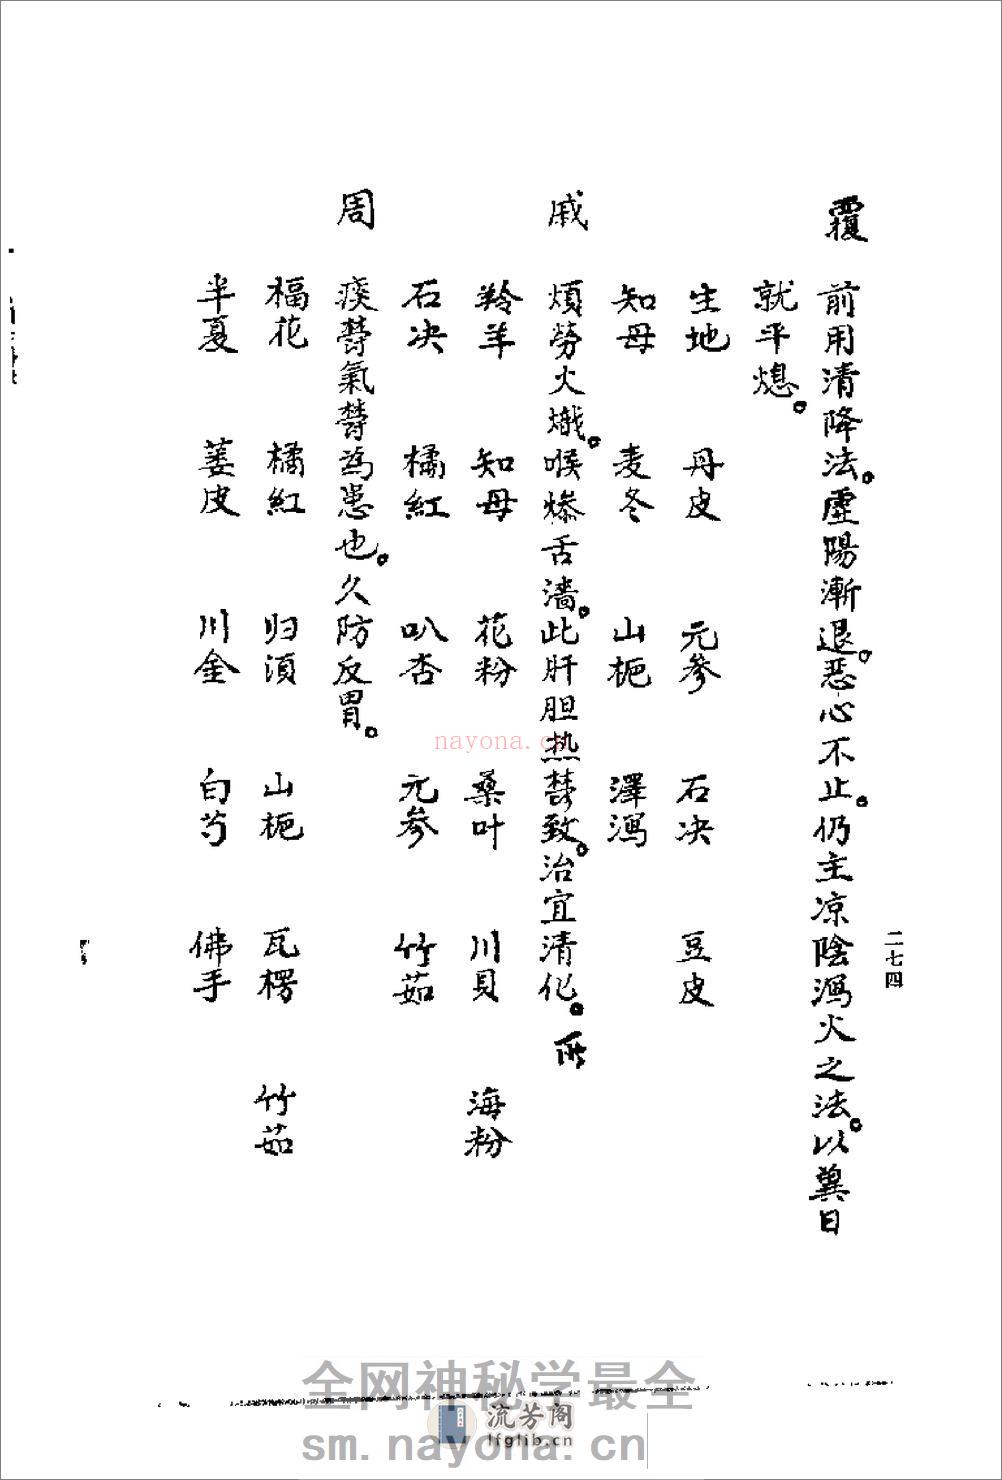 二七四
覆 前用清降法。虛陽漸退。惡心不止。仍主凉陰瀉火之法。以冀日
就平熄。
生地 丹皮 元參 石决 豆皮
知母 麦冬 山栀 澤瀉
戚 煩勞火熾。喉燥舌濇。此肝胆热欝致。治宜清化。所
羚羊 知母 花粉 桑叶 川貝 海粉
石决 橘紅 叭杏 元參 竹茹
周 痰欝氣欝為患也。久防反胃。
福花 橘紅 归須 山栀 瓦楞 竹茹
半夏 蒌皮 川金 白芍 佛手
nayona.cn
全网神秘学最全
流芳阁
lfglib.cn
sm.nayona.cn